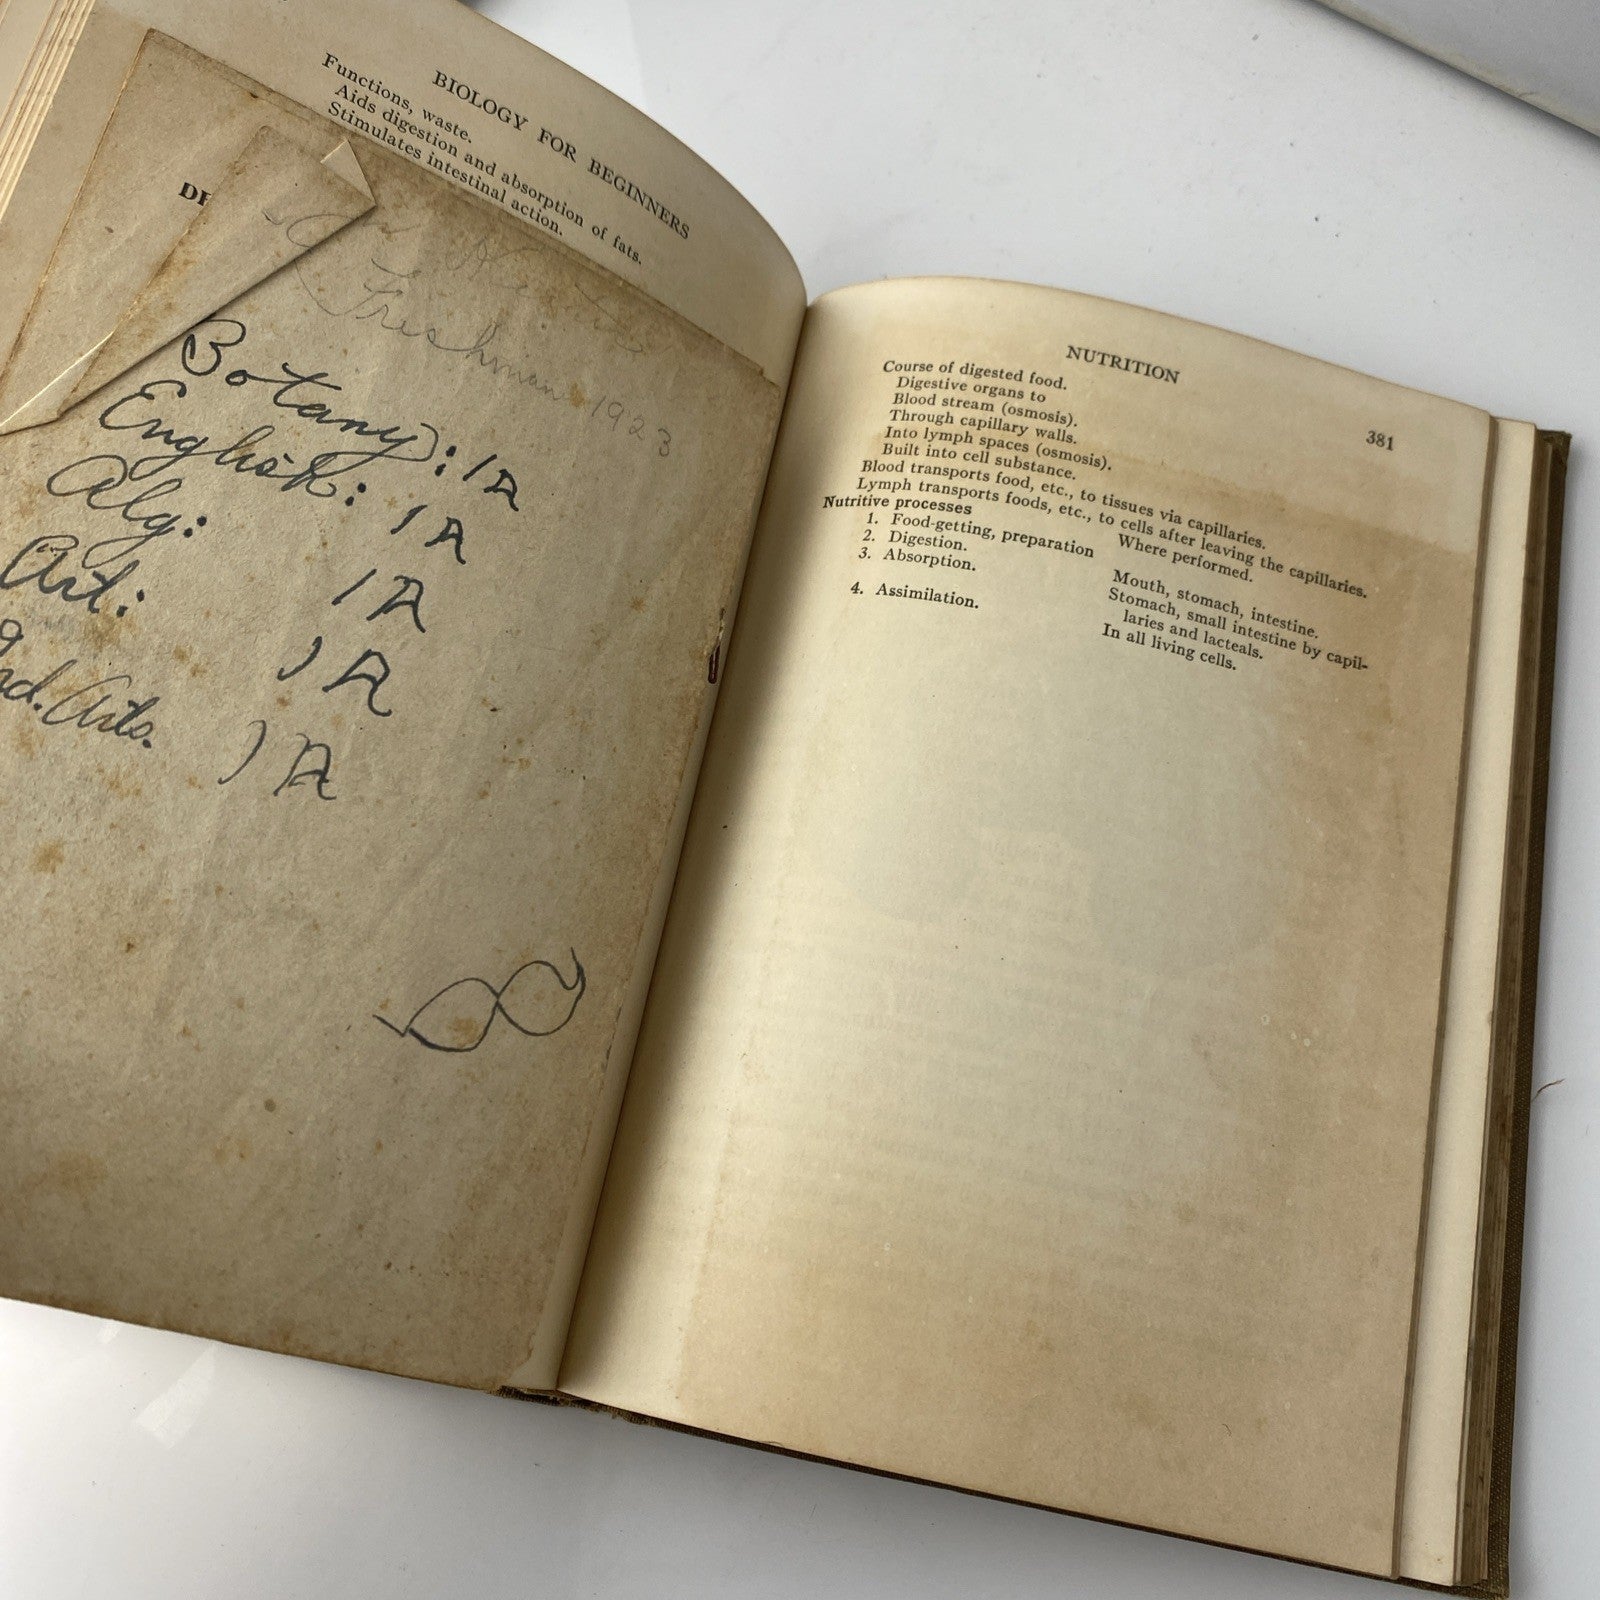 BIOLOGY FOR BEGINNERS
Functions, waste.
Aids digestion and absorption of fats.
Stimulates intestinal action.
Freshman 1923
Botany: 1A
English: 1A
Alg: 1A
Art: 1A
nd. Arts. 1A
NUTRITION 381
Course of digested food.
Digestive organs to
Blood stream (osmosis).
Through capillary walls.
Into lymph spaces (osmosis).
Built into cell substance.
Blood transports food, etc., to tissues via capillaries.
Lymph transports foods, etc., to cells after leaving the capillaries.
Nutritive processes Where performed.
1. Food-getting, preparation
2. Digestion. Mouth, stomach, intestine.
3. Absorption. Stomach, small intestine by capil-
laries and lacteals.
4. Assimilation. In all living cells.